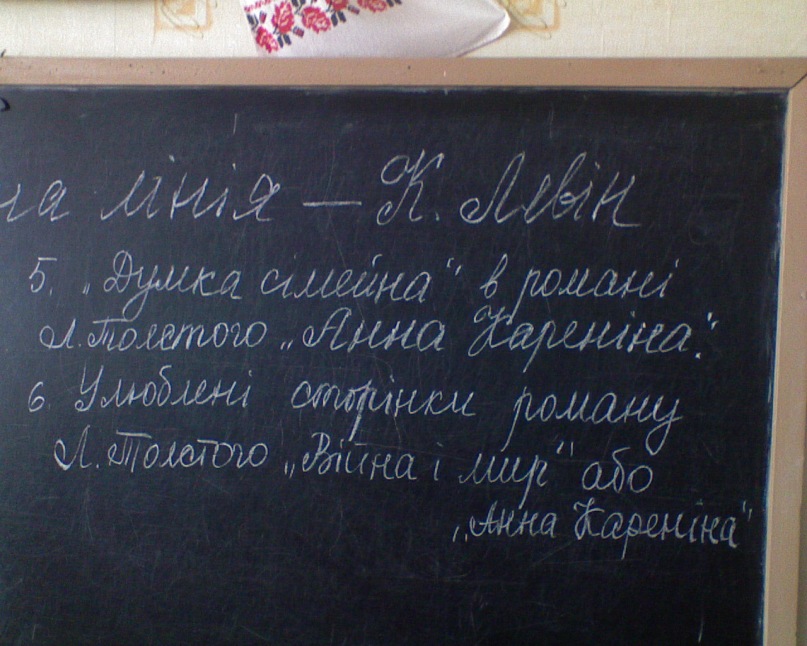 на лінія — К. Левін
5. „Думка сімейна“ в романі
Л. Толстого „Анна Кареніна.“
6. Улюблені сторінки роману
Л. Толстого „Війна і мир“ або
„Анна Кареніна“